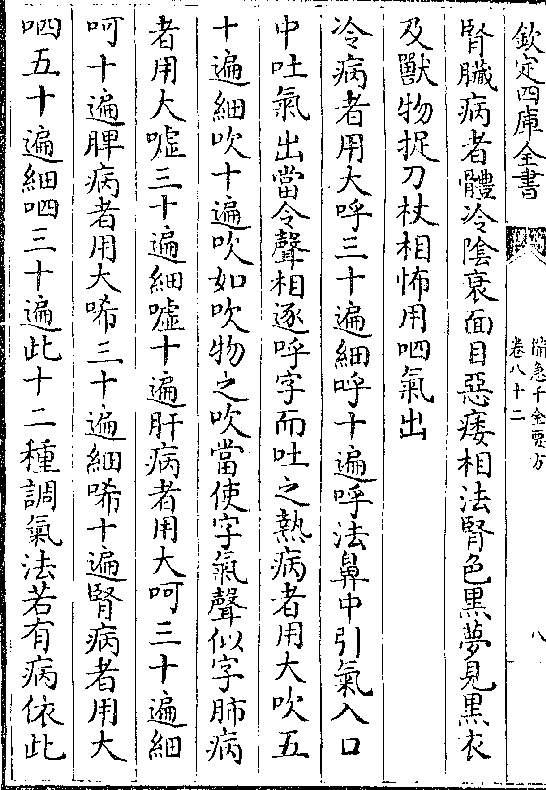 欽定四庫全書
備急千金要方
卷八十二
八
腎臟病者體冷陰衰面目惡痿相法腎色黑夢見黑衣
及獸物捉刀杖相怖用呬氣出
冷病者用大呼三十遍細呼十遍呼法鼻中引氣入口
中吐氣出當令聲相逐呼字而吐之熱病者用大吹五
十遍細吹十遍吹如吹物之吹當使字氣聲似字肺病
者用大噓三十遍細噓十遍肝病者用大呵三十遍細
呵十遍脾病者用大唏三十遍細唏十遍腎病者用大
呬五十遍細呬三十遍此十二種調氣法若有病依此